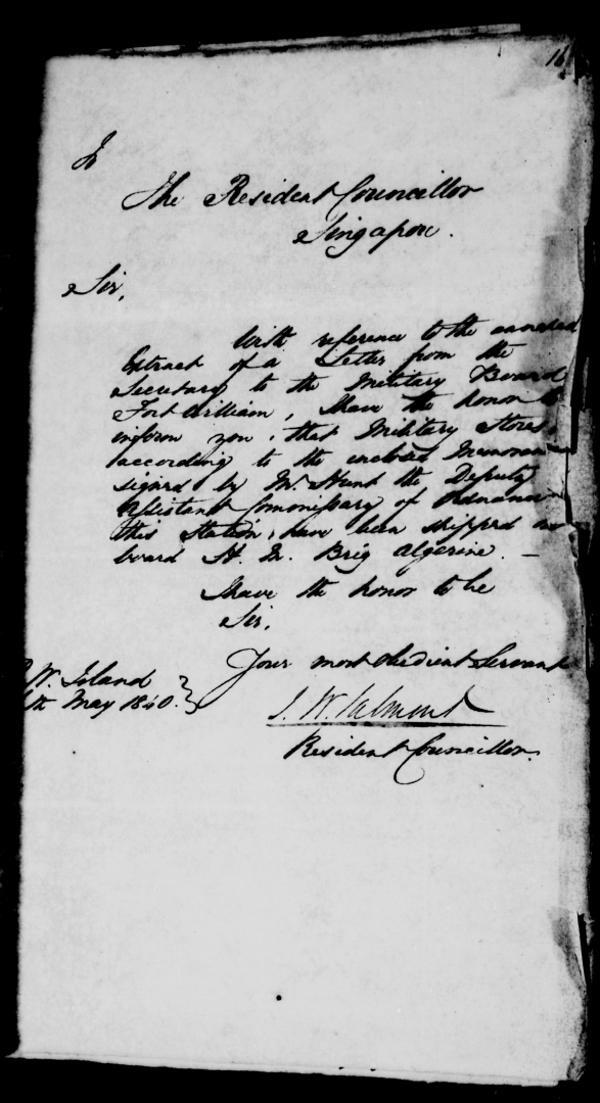 16
To
The Resident Councillor
Singapore.
Sir,
With reference to the annexed
Extract of a Letter from the
Secretary to the Military Board
Fort William, I have the honor to
inform you, that Military Stores,
according to the enclosed
signed by Mr Hunt the Deputy
Assistant Commissary of Ordnance
this Station, have been shipped on
board H. M. Brig Algerine. —
I have the honor to be
Sir,
Your most obedient Servant
W. Island
May 1840.
Resident Councillor.